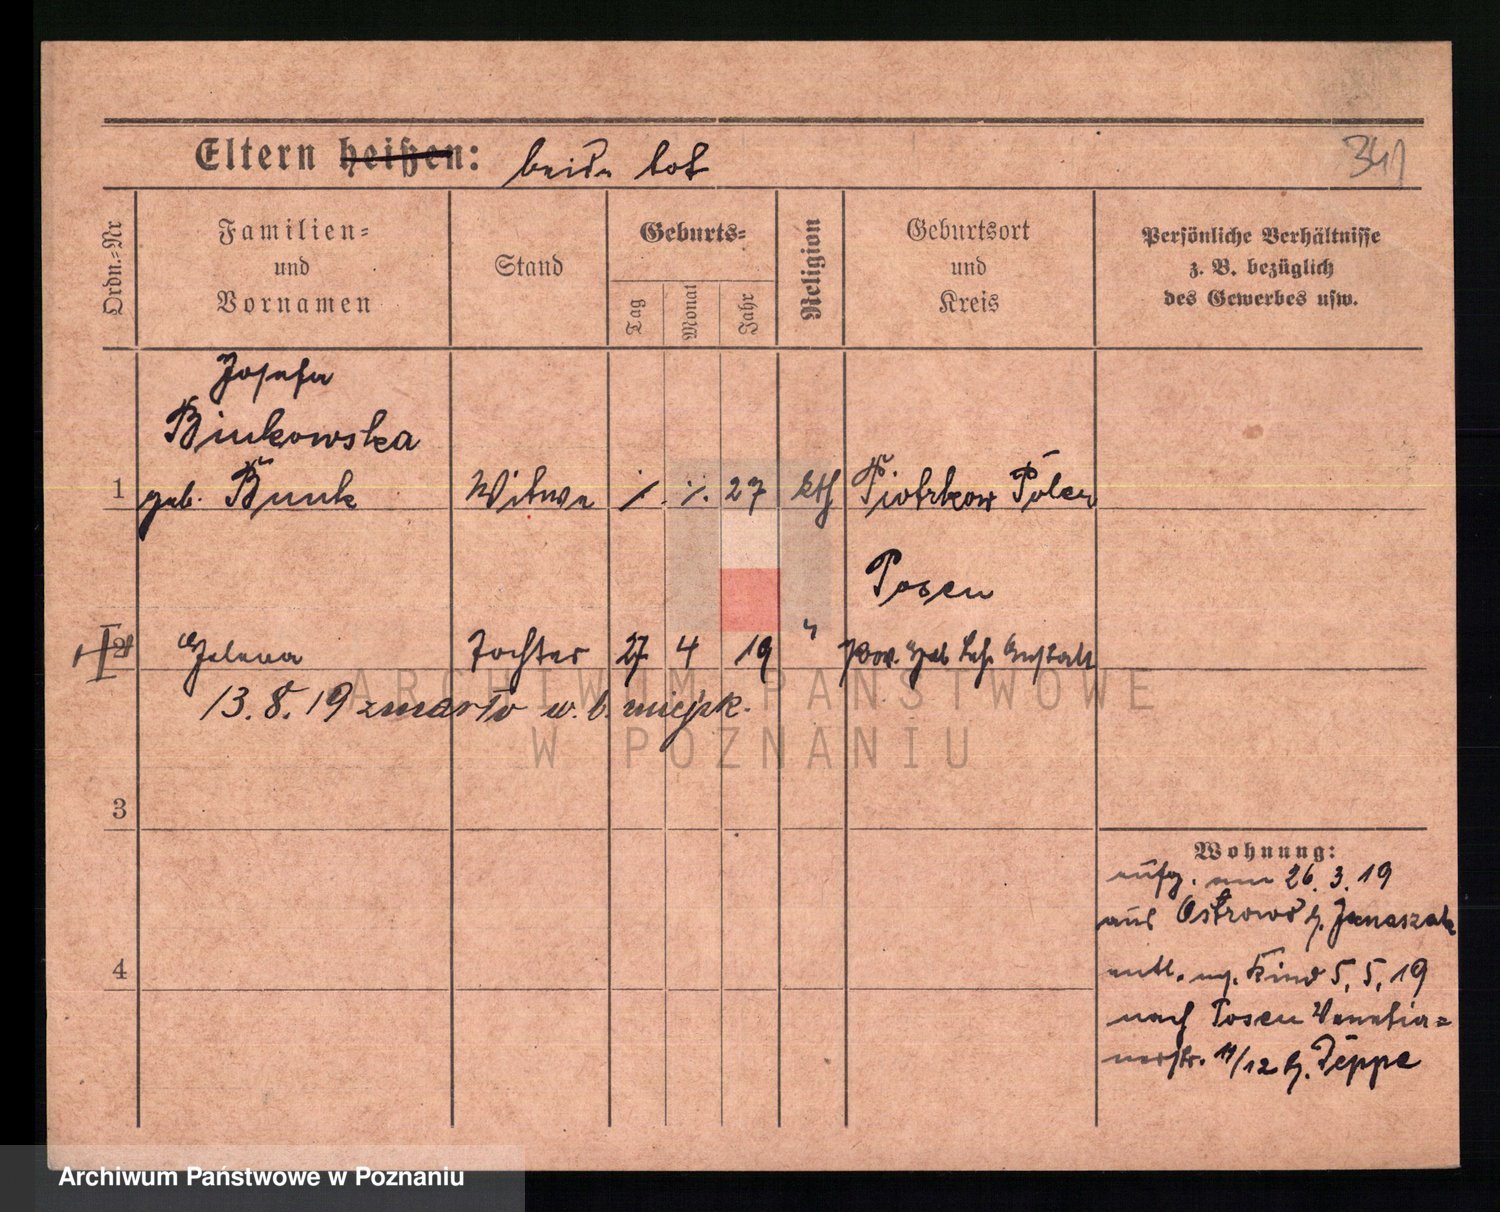 Eltern heißen: beide tot
341
Ordn.-Nr
Familien-
und
Vornamen
Stand
Geburts-
Tag
Monat
Jahr
Religion
Geburtsort
und
Kreis
Persönliche Verhältnisse
z. B. bezüglich
des Gewerbes usw.
Josefa
Binkowska
1 geb. Bunk Witwe ./. ./. 27 kth Piotrkow Polen
Posen
2 Helena Tochter 27 4 19 " Prov. Heb. Lehr Anstalt
13.8.19 zmarło w. b. miejsk.
3
4
Wohnung:
aufg. am 26.3.19
aus Ostrowo b. Janaszak
entl. m. Kind 5.5.19
nach Posen Venetia=
nerstr. 11/12 b. Zeppe
ARCHIWUM PAŃSTWOWE
W POZNANIU
Archiwum Państwowe w Poznaniu